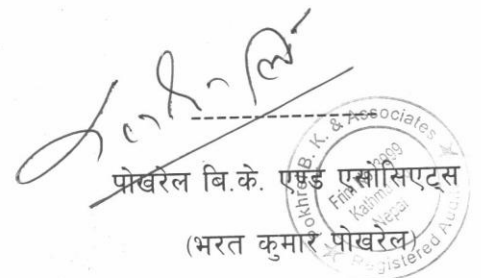 पोखरेल बि.के. एण्ड एसोसिएट्स
(भरत कुमार पोखरेल)
Pokhrel B. K. & Associates
Kathmandu
Nepal
Registered Auditor